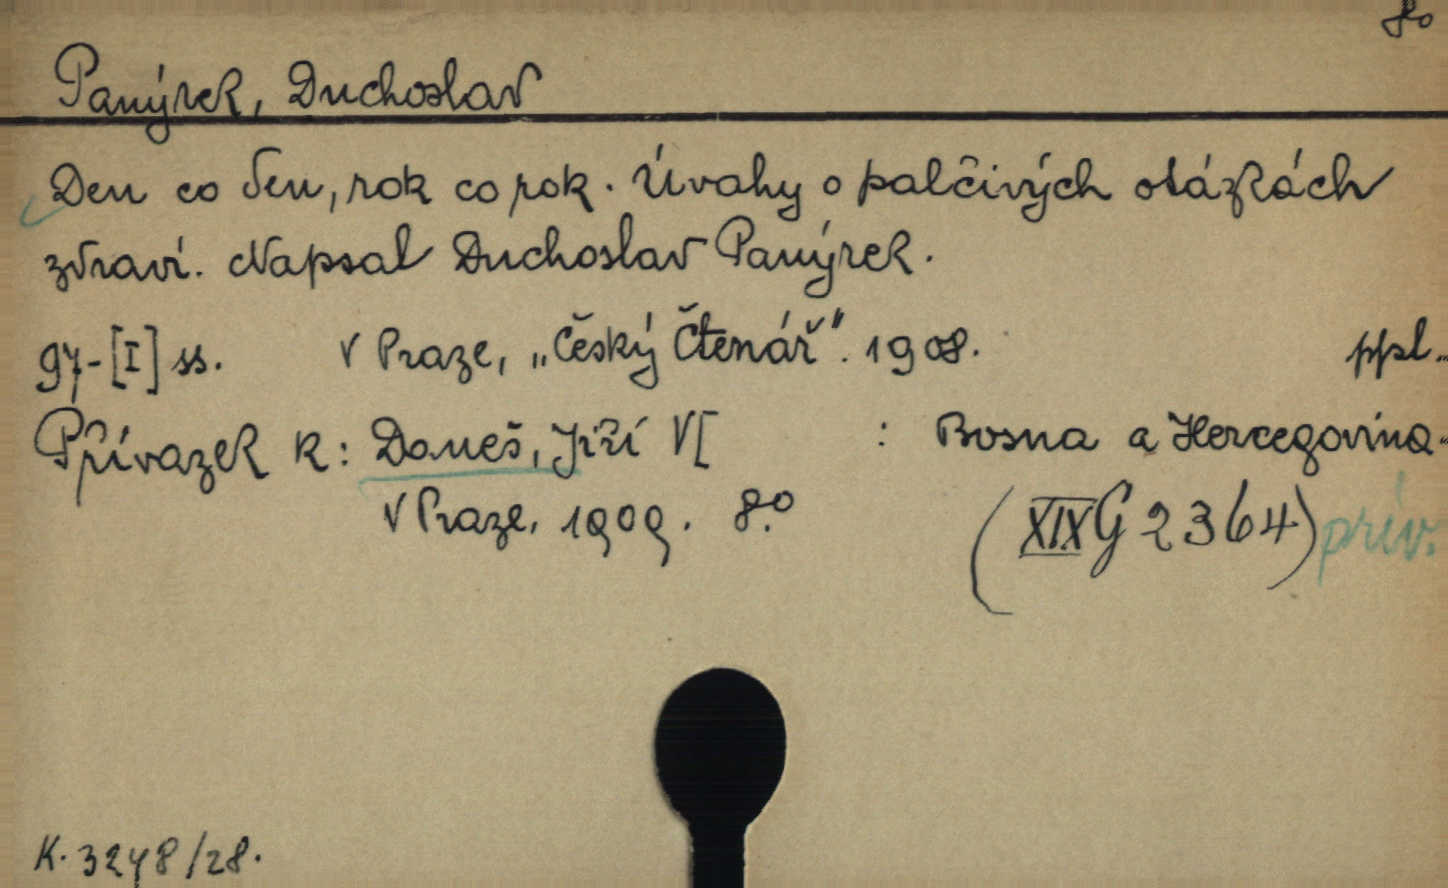 8o
Panýrek, Duchoslav
Den co den, rok co rok. Úvahy o palčivých otázkách
zdraví. Napsal Duchoslav Panýrek.
97-[I] ss. V Praze, „Český Čtenář". 1908. ppl.
Přívazek k: Daneš, Jiří V[ : Bosna a Hercegovina.
V Praze, 1909. 8.º
(XIX G 2364) přív.
K. 3278/28.